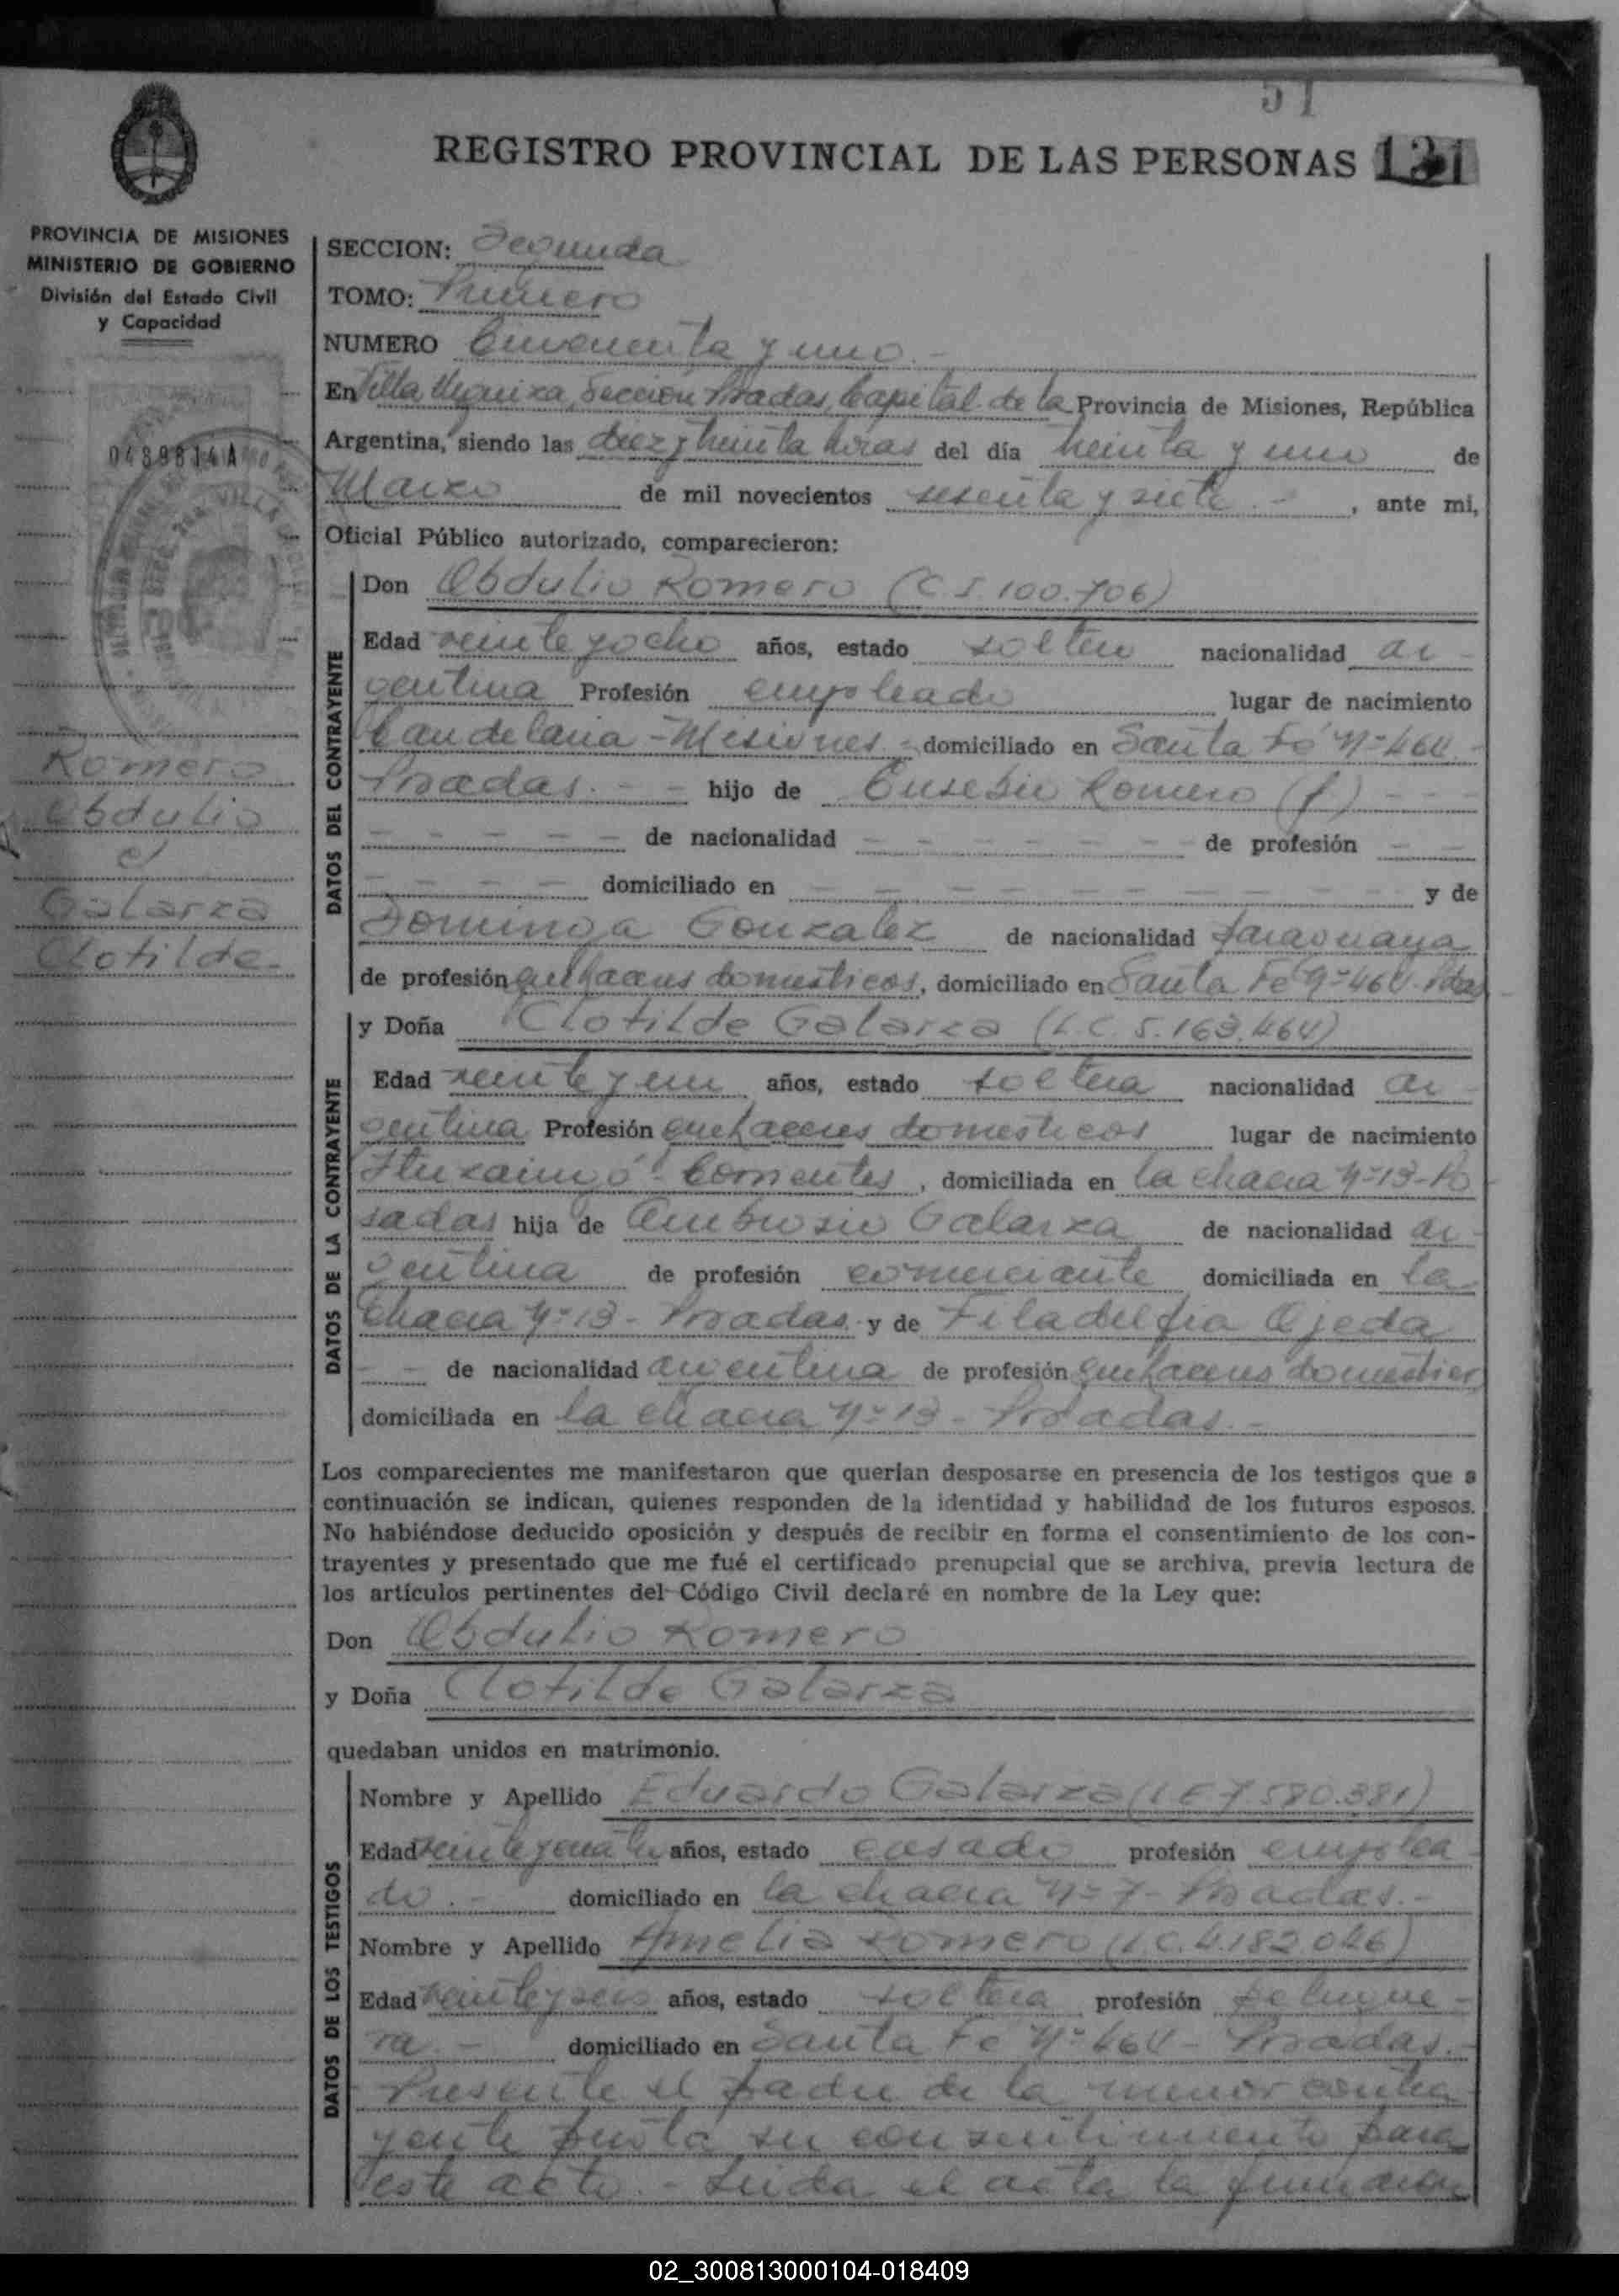 51
REGISTRO PROVINCIAL DE LAS PERSONAS 121
PROVINCIA DE MISIONES
MINISTERIO DE GOBIERNO
División del Estado Civil
y Capacidad
0489814 A
Romero
Obdulio
c/
Galarza
Clotilde-
SECCION: Segunda
TOMO: Primero
NUMERO Cincuenta y uno.-
En Villa Urquiza, Sección Posadas, Capital de la Provincia de Misiones, República
Argentina, siendo las diez y treinta horas del día treinta y uno de
Marzo de mil novecientos sesenta y siete.-, ante mi,
Oficial Público autorizado, comparecieron:
DATOS DEL CONTRAYENTE
Don Obdulio Romero (C I. 100.706)
Edad veinte y ocho años, estado soltero nacionalidad ar-
gentina Profesión empleado lugar de nacimiento
Candelaria-Misiones.-, domiciliado en Santa Fé Nº 464.-
Posadas.- - hijo de Eusebio Romero (f) - - -
- - - - - - de nacionalidad - - - - - - - de profesión - -
- - - - domiciliado en - - - - - - - - - - y de
Dominga Gonzalez de nacionalidad paraguaya
de profesión quehaceres domesticos, domiciliado en Santa Fé Nº 464. Pdas
DATOS DE LA CONTRAYENTE
y Doña Clotilde Galarza (L.C 5.163.464)
Edad veinte y un años, estado soltera nacionalidad ar-
gentina Profesión quehaceres domesticos lugar de nacimiento
Ituzaingó-Corrientes, domiciliada en la chacra Nº 13-Po-
sadas hija de Ambrosio Galarza de nacionalidad ar-
gentina de profesión comerciante domiciliada en la
Chacra Nº 13- Posadas. y de Filadelfia Ojeda
- - de nacionalidad argentina de profesión quehaceres domesticos
domiciliada en la chacra Nº 13- Posadas.-
Los comparecientes me manifestaron que querían desposarse en presencia de los testigos que a
continuación se indican, quienes responden de la identidad y habilidad de los futuros esposos.
No habiéndose deducido oposición y después de recibir en forma el consentimiento de los con-
trayentes y presentado que me fué el certificado prenupcial que se archiva, previa lectura de
los artículos pertinentes del Código Civil declaré en nombre de la Ley que:
Don Obdulio Romero
y Doña Clotilde Galarza
quedaban unidos en matrimonio.
DATOS DE LOS TESTIGOS
Nombre y Apellido Eduardo Galarza (L E 7.580.381)
Edad veinte y cuatro años, estado casado profesión emplea-
do.- domiciliado en la chacra Nº 7- Posadas.-
Nombre y Apellido Amelia Romero (L.C. 4.182.046)
Edad veinte y seis años, estado soltera profesión peluque-
ra.- domiciliado en Santa Fe Nº 464- Posadas.-
Presente el padre de la menor contra-
yente presta su consentimiento para
este acto.- Leida el acta la firmaron
02_300813000104-018409